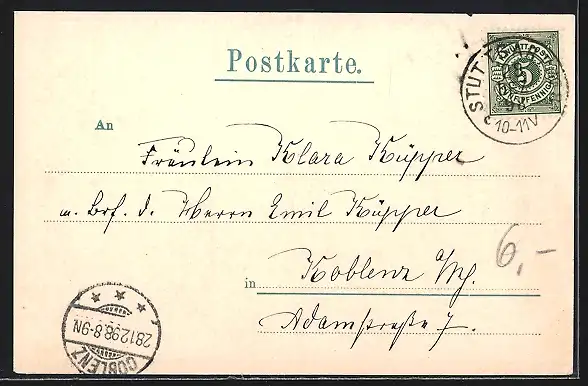 Postkarte.
K. WÜRTT. POST
5
FÜNF PFENNIG
STUTTG
10-11V
An
Fräulein Klara Küpper
u. Brf. d. Herrn Emil Küpper
6,-
in Koblenz a/Rh.
Adamstraße 7.
COBLENZ
28.12.98.8-9N.